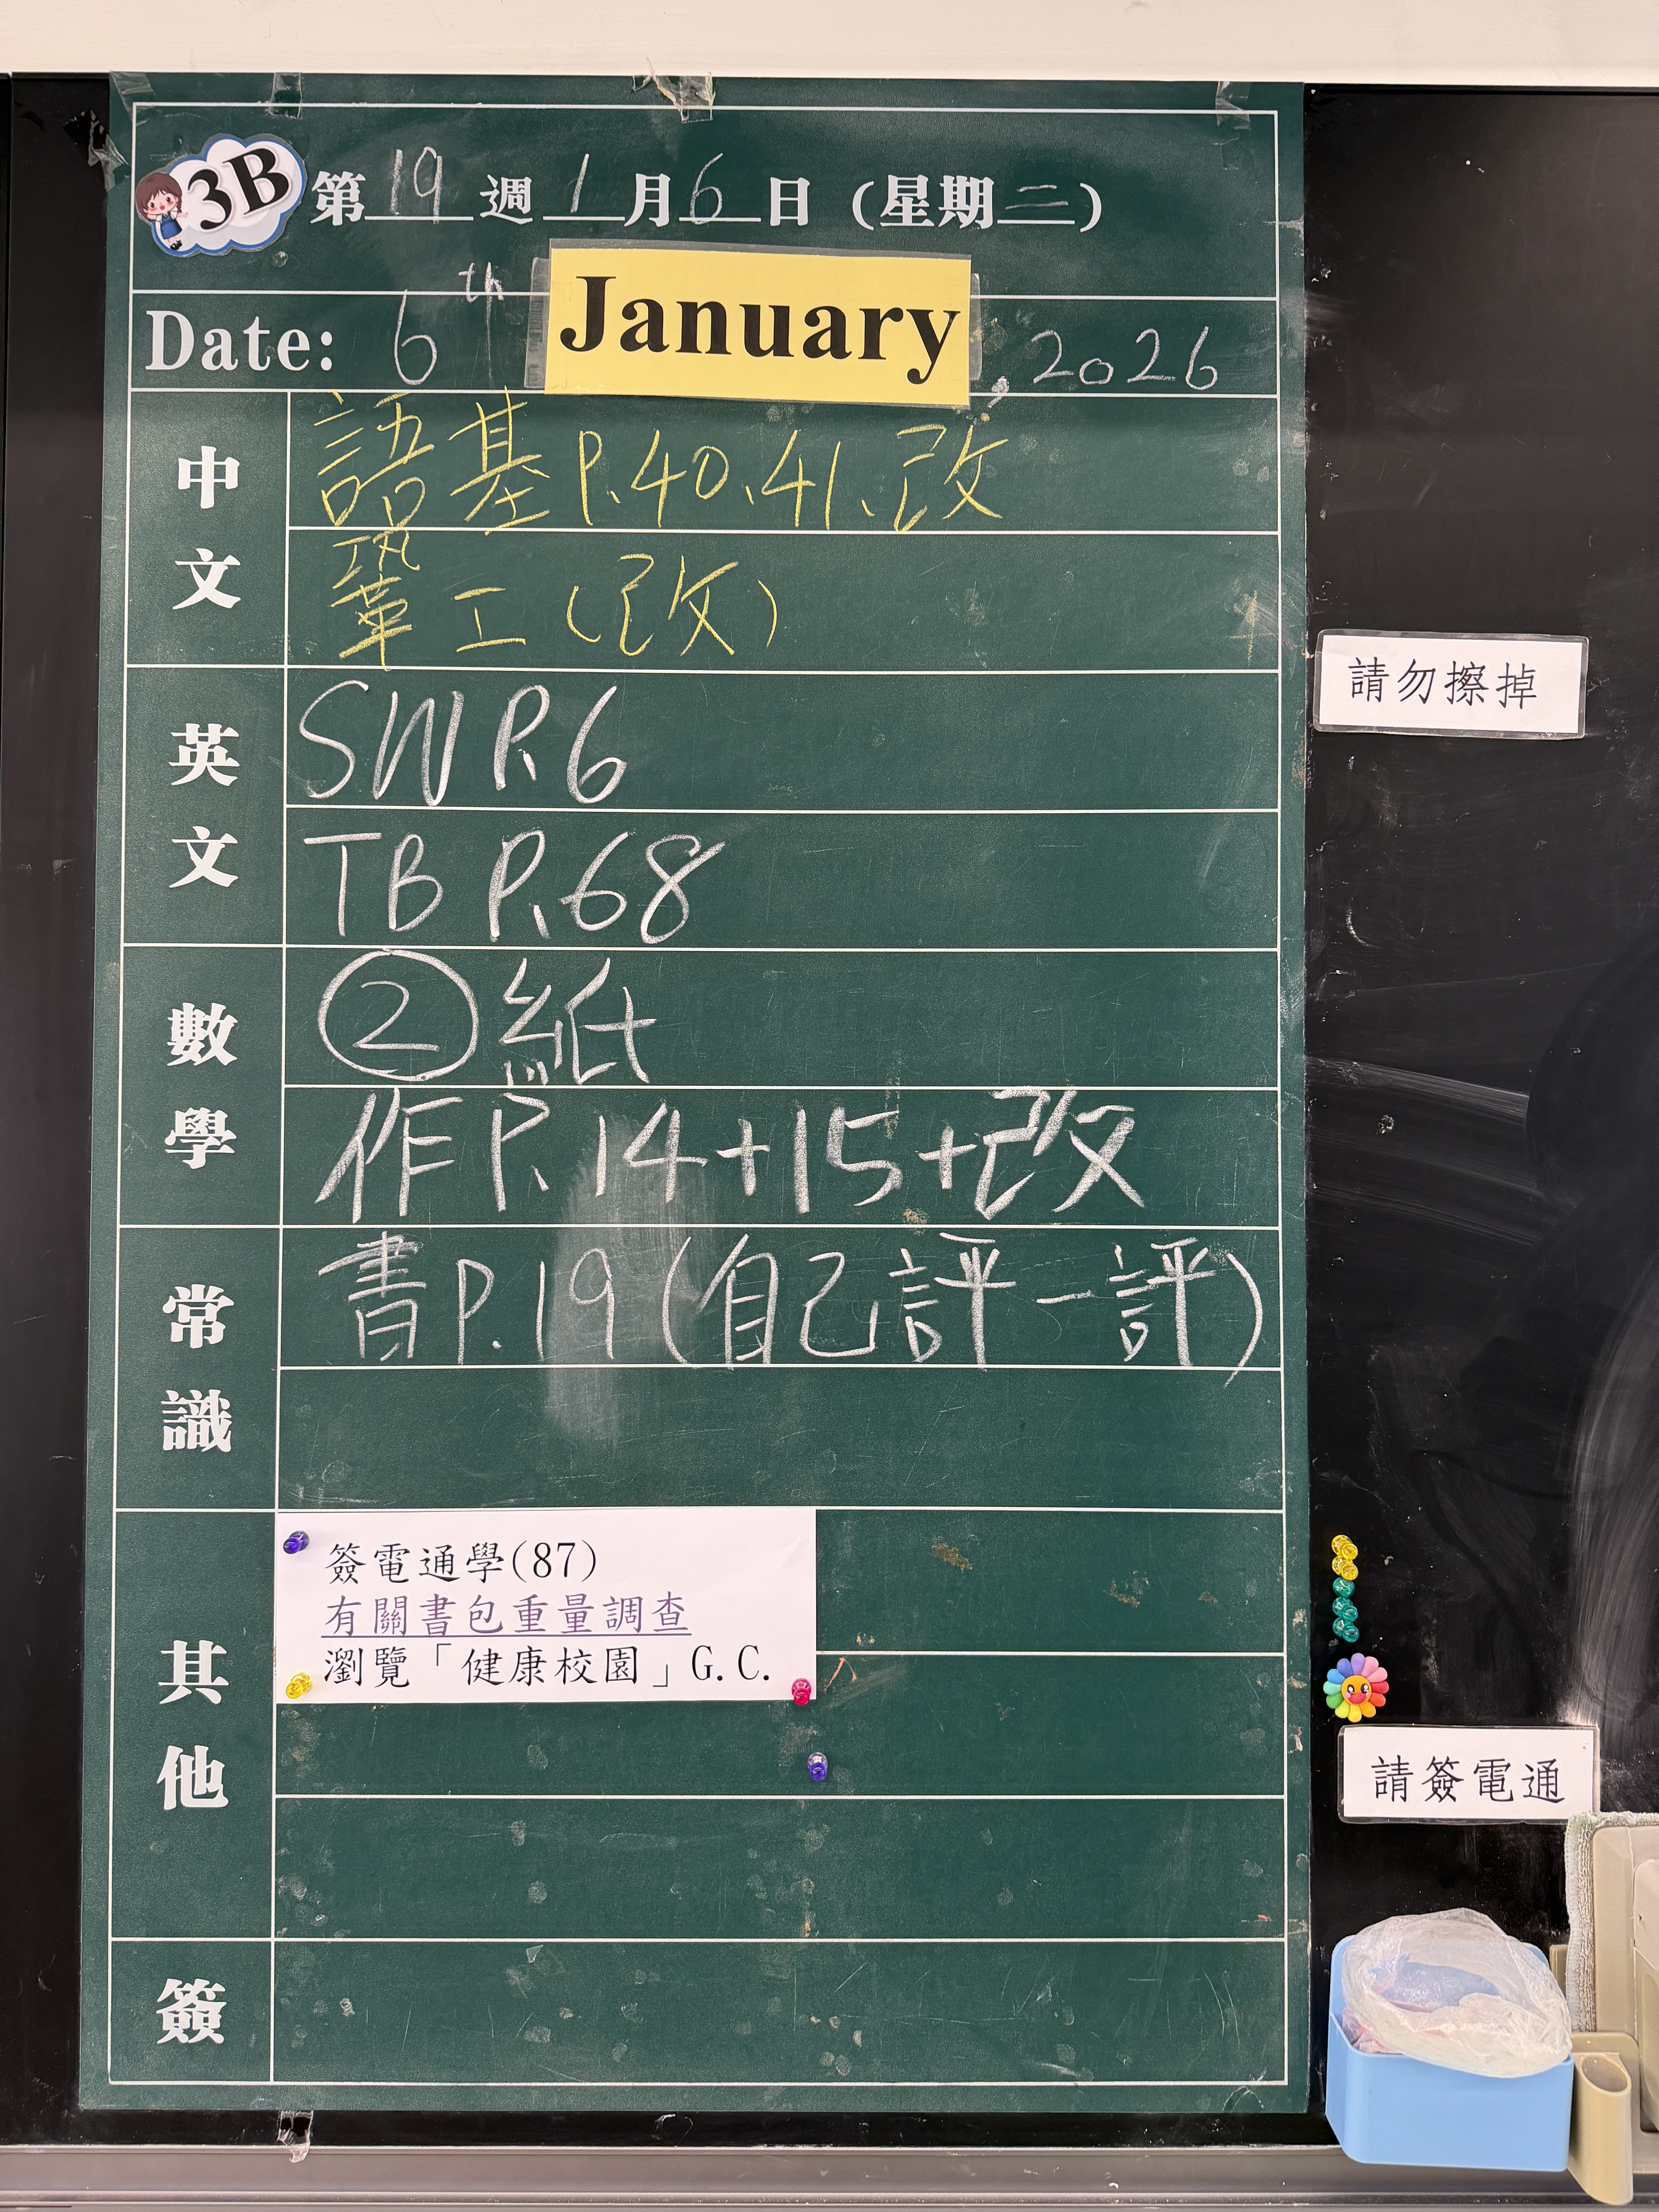 3B 第19週1月6日(星期二)
Date: 6th January, 2026
中文
語基P.40、41、改
鞏工(改)
英文
SW P.6
TB P.68
數學
②紙
作P.14+15+改
常識
書P.19(自己評一評)
其他
簽電通學(87)
有關書包重量調查
瀏覽「健康校園」G.C.
簽
請勿擦掉
請簽電通